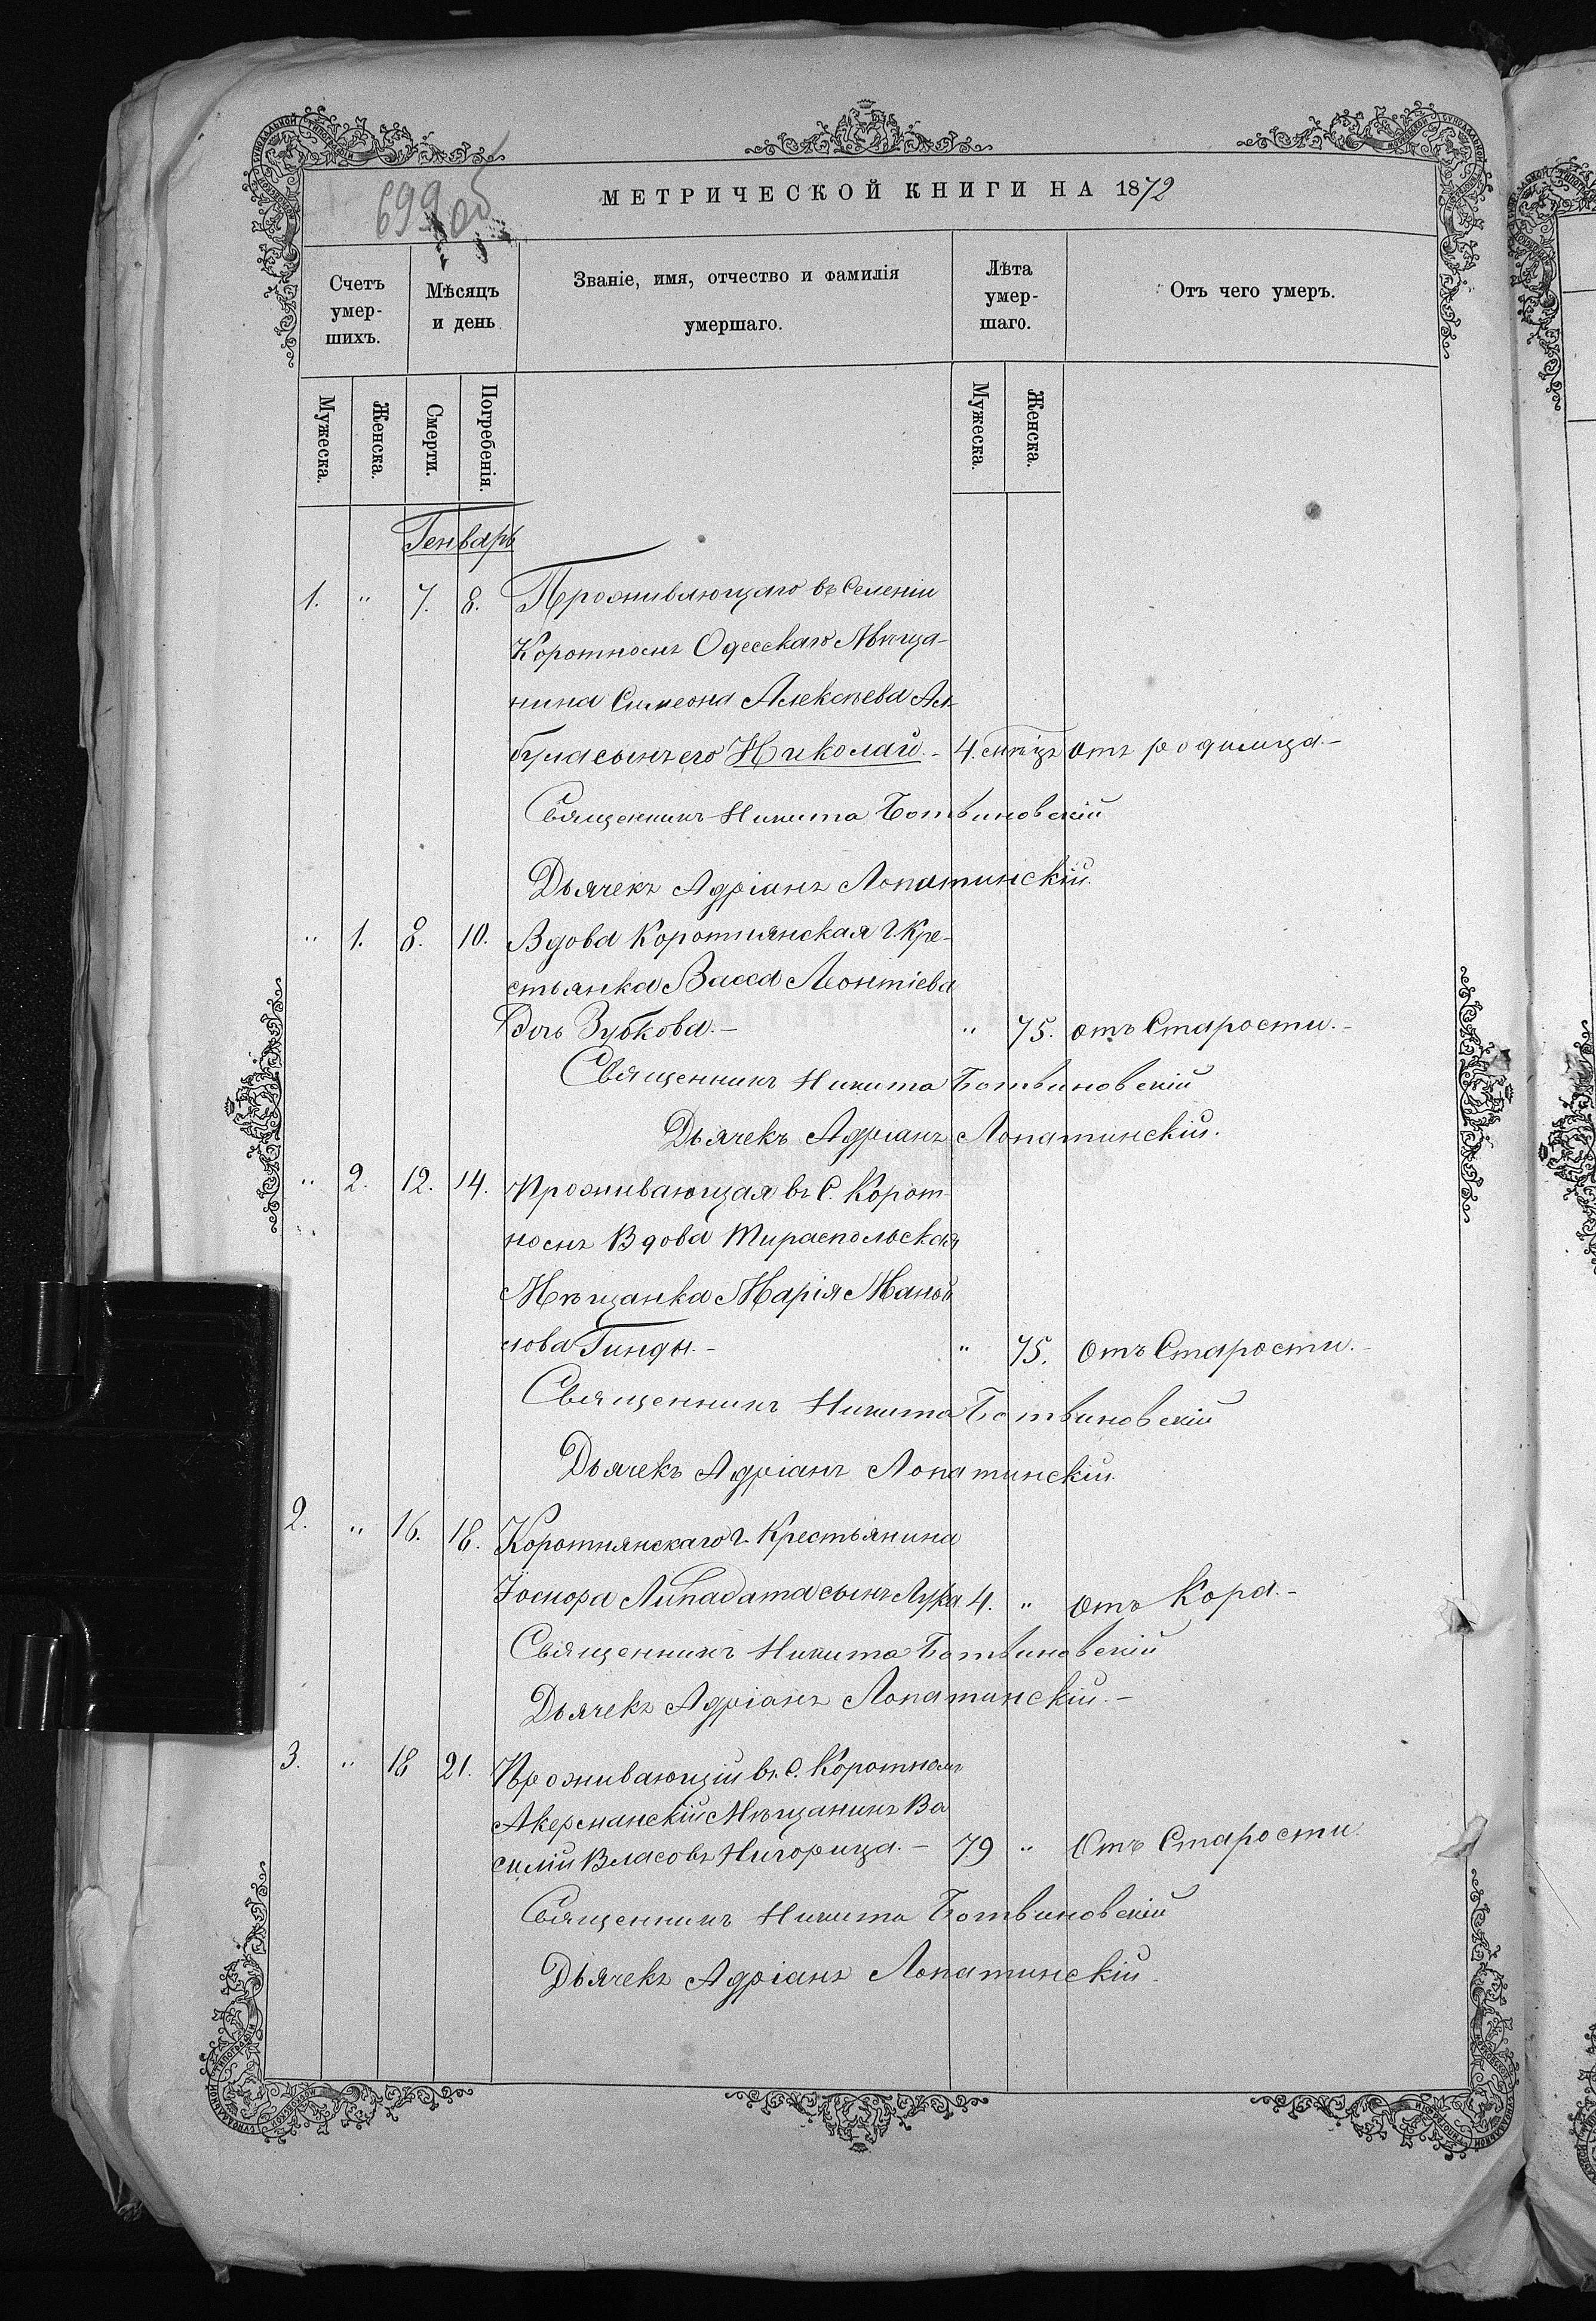 699 об
МЕТРИЧЕСКОЙ КНИГИ НА 1872
Счетъ умер-шихъ. Мѣсяцъ и день Званіе, имя, отчество и фамилія умершаго. Лѣта умер-шаго. Отъ чего умеръ.
Мужеска. Женска. Смерти. Погребенія. Мужеска. Женска.
Генварь
1. " 7. 8. Проживающаго въ Селеніи
Коротномъ Одесскаго Мѣща-
нина Симеона Алексѣева Ал
була сынъ его Николай.- 4. мѣсц отъ родимца.-
Священникъ Никита Ботвиновскій
Дьячекъ Адріанъ Лопатинскій.
" 1. 8. 10. Вдова Коротнянская г. Кре-
стьянка Васса Леонтіева
Дочь Зубкова.- " 75. отъ Старости.-
Священникъ Никита Ботвиновскій
Дьячекъ Адріанъ Лопатинскій.
" 2. 12. 14. Проживающая въ С. Корот-
номъ Вдова Тираспольская
Мѣщанка Марія Маной
лова Гинды.- " 75. Отъ Старости.-
Священникъ Никита Ботвиновскій
Дьячекъ Адріанъ Лопатинскій.
2. " 16. 18. Коротнянскаго г. Крестьянина
Липадата сынъ Лука 4. " Отъ Кора.-
Священникъ Никита Ботвиновскій
Дьячекъ Адріанъ Лопатинскій.-
3. " 18 21. Проживающій въ С. Коротномъ
Акерманскій Мѣщанинъ Ва
силій Власовъ Ничорица.- 79 " Отъ Старости
Священникъ Никита Ботвиновскій
Дьячекъ Адріанъ Лопатинскій.